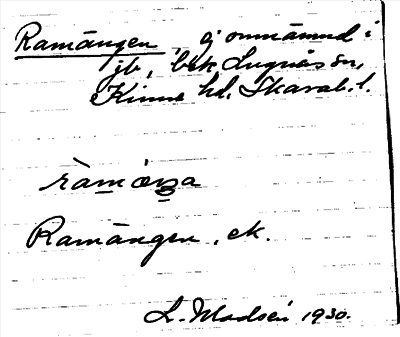 Ramängen, ej omnämnd i
jb, bek Lugnås sn,
Kinne hd, Skarab. l.
ràmäŋa
Ramängen, ek.
L. Madsén 1930.